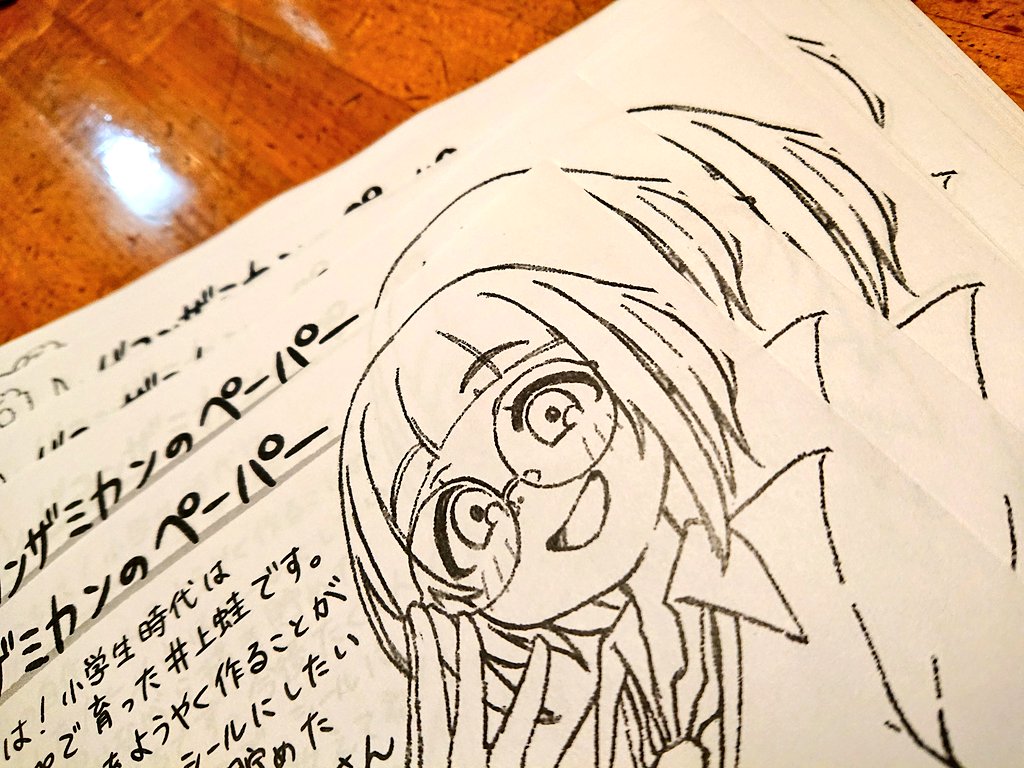 ンザミカンのペーパー
ザミカンのペーパー
は！小学生時代は
で育った井上蛙です。
をようやく作ることが
シールにしたい
貯めた
さん